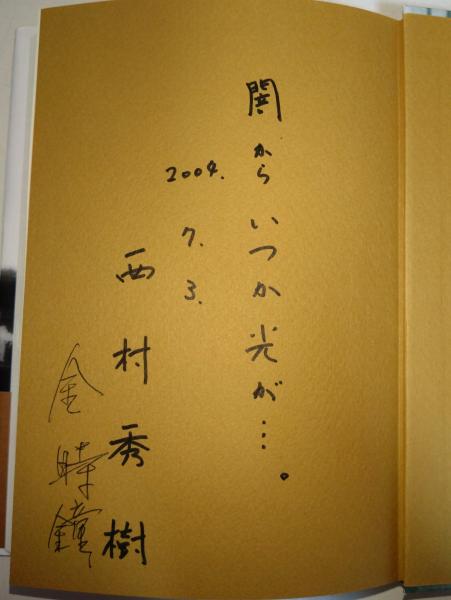 から いつか光が…。
2004. 7. 3.
西村秀樹
金時鐘